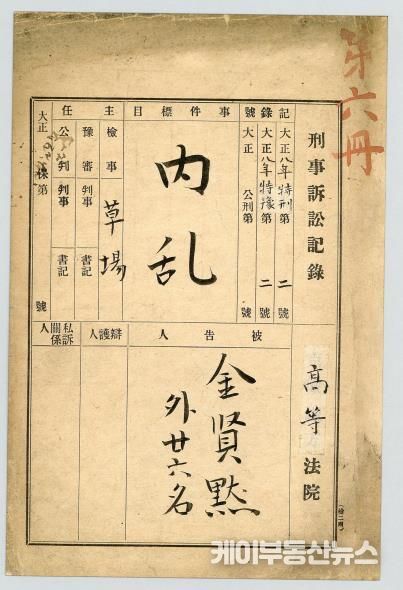 第六冊
刑事訴訟記錄
高等法院
記錄號
大正八年特刑第二號
大正八年特豫第二號
大正 公刑第 號
事件標目
內乱
主任
檢事 草場
豫審判事 書記
公判判事 書記
大正
第 號
被告人
金賢黙
外廿六名
辯護人
私訴關係人
케이부동산뉴스